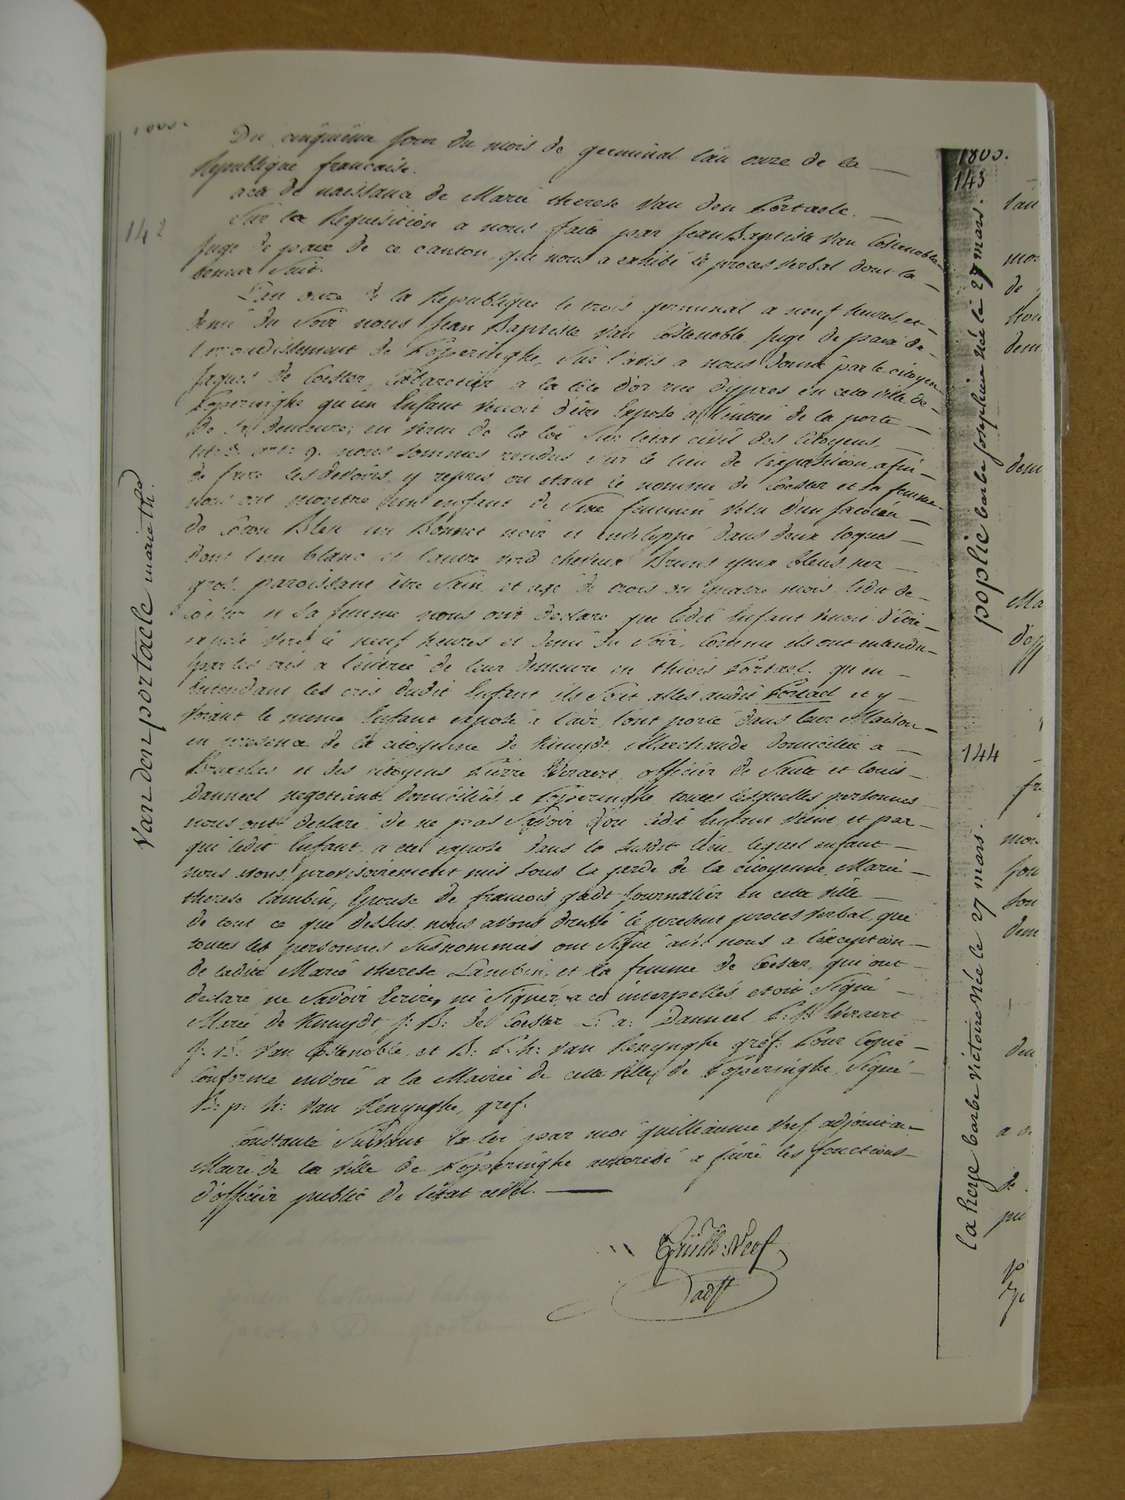 142
Van den portaele marie th
Du cinquième jour du mois de germinal l'an onze de la
Republique francaise.
acte de naissance de Marie therese Van den Portaele.
Sur la Requisition a nous faite par Jean Baptiste Van Costenoble
Juge de paix de ce canton, que nous a exhibé le proces verbal dont la
teneur suit.
L'an onze de la Republique le trois germinal a neuf heures et
demi du Soir nous Jean Baptiste Van Costenoble Juge de paix de
l'arrondissement de Poperinghe, Sur l'avis a nous donné par le citoyen
Jaques de Coester, Cabaretier a la tête d'or rue d'ypres en cette ville de
Poperinghe qu'un Enfant venoit d'être Exposé a l'entrée de la porte
de sa demeure, en vertu de la loi Sur l'état civil des Citoyens
art: 9. nous sommes rendus Sur le lieu de l'exposition, afin
de faire les devoirs y repris ou etant le nommé de Coester et sa femme
nous ont montré un enfant de Sexe feminin vetu d'un
de Coton Bleu un Bonnet noir et enveloppé dans deux loques
dont l'un blanc et l'autre cheveux Bruns yeux bleus nez
gros, paroissant être Sain et agé de trois ou quatre mois, ledit de
Coester et sa femme nous ont declaré que ledit Enfant venoit d'être
exposé vers les neuf heures et demi du Soir, Comme ils ont entendu
par les cris a l'entrée de leur demeure en thiois Portael, qu'en
entendant les cris dudit Enfant ils Sont allés audit Portael et y
voiant le meme Enfant exposé a l'air l'ont porté dans leur Maison
en presence de la citoyenne de Kimydt Marchande domiciliée a
Bruxelles et des citoyens Pierre Veraert officier de Santé et Louis
Danneel negotiant domiciliés a Poperinghe toutes lesquelles personnes
nous ont declaré de ne pas Savoir d'ou ledit Enfant vient et par
qui ledit Enfant a été exposé dans le susdit lieu, lequel enfant
nous avons provisoirement mis sous la garde de la citoyenne Marie
therese Lambin, Epouse de francois Journalier en cette ville
de tout ce que dessus nous avons dressé le present proces verbal que
toutes les personnes Susnommés ont Signé avec nous a l'exception
de ladite Marie therese Lambin et la femme de Coester, qui ont
declaré ne Savoir Ecrire, ni Signer, a ce interpellés, etoit Signé
Marie de Kimydt J: B: de Coester L: a: Danneel P: Veraert
J: B: Van Costenoble et B: P: h: Van Renynghe gref: Pour Copie
Conforme envoié a la Mairie de cette ville de Poperinghe Signé
B: p: h: Van Renynghe, gref.
Constaté Suivant la loi par moi guillaume Verf adjoint au
Maire de la ville de Poperinghe autorisé a faire les fonctions
d'officier public de l'état civil.
Guill: Verf
adjt
1803.
143
poplie barbe josephine née le 27 mars.
144
la heye barbe victoire née le 27 mars.